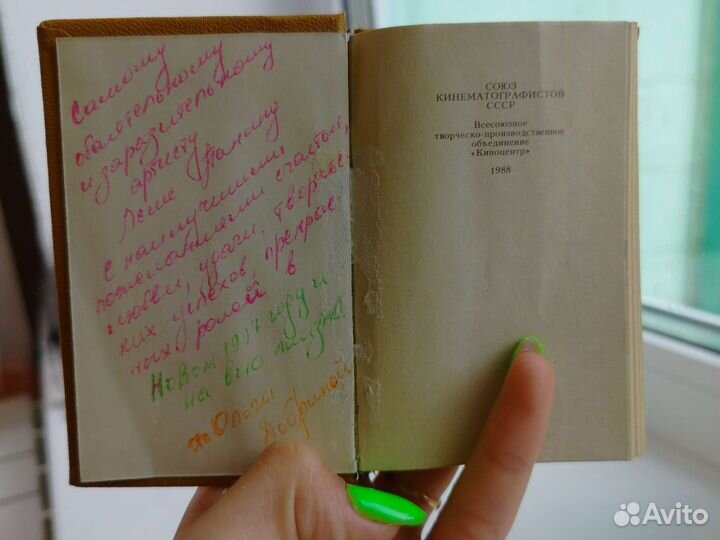 Самому
обаятельному
и заразительному
артисту
Леше Панину
с наилучшими
пожеланиями счастья,
любви, удачи, творчес-
ких успехов, прекрас-
ных ролей в
Новом 1997 году и
на всю жизнь!
от Юлочки
Добриной
СОЮЗ
КИНЕМАТОГРАФИСТОВ
СССР
Всесоюзное
творческо-производственное
объединение
«Киноцентр»
1988
Avito